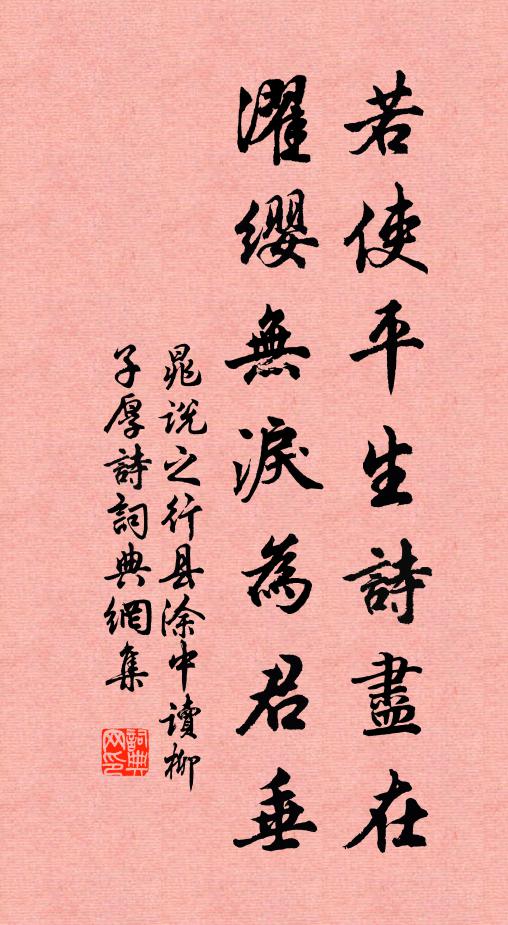 若使平生詩盡在
濯纓無淚為君垂
晁说之行县涂中讀柳
子厚詩詞典網集
詞典网印